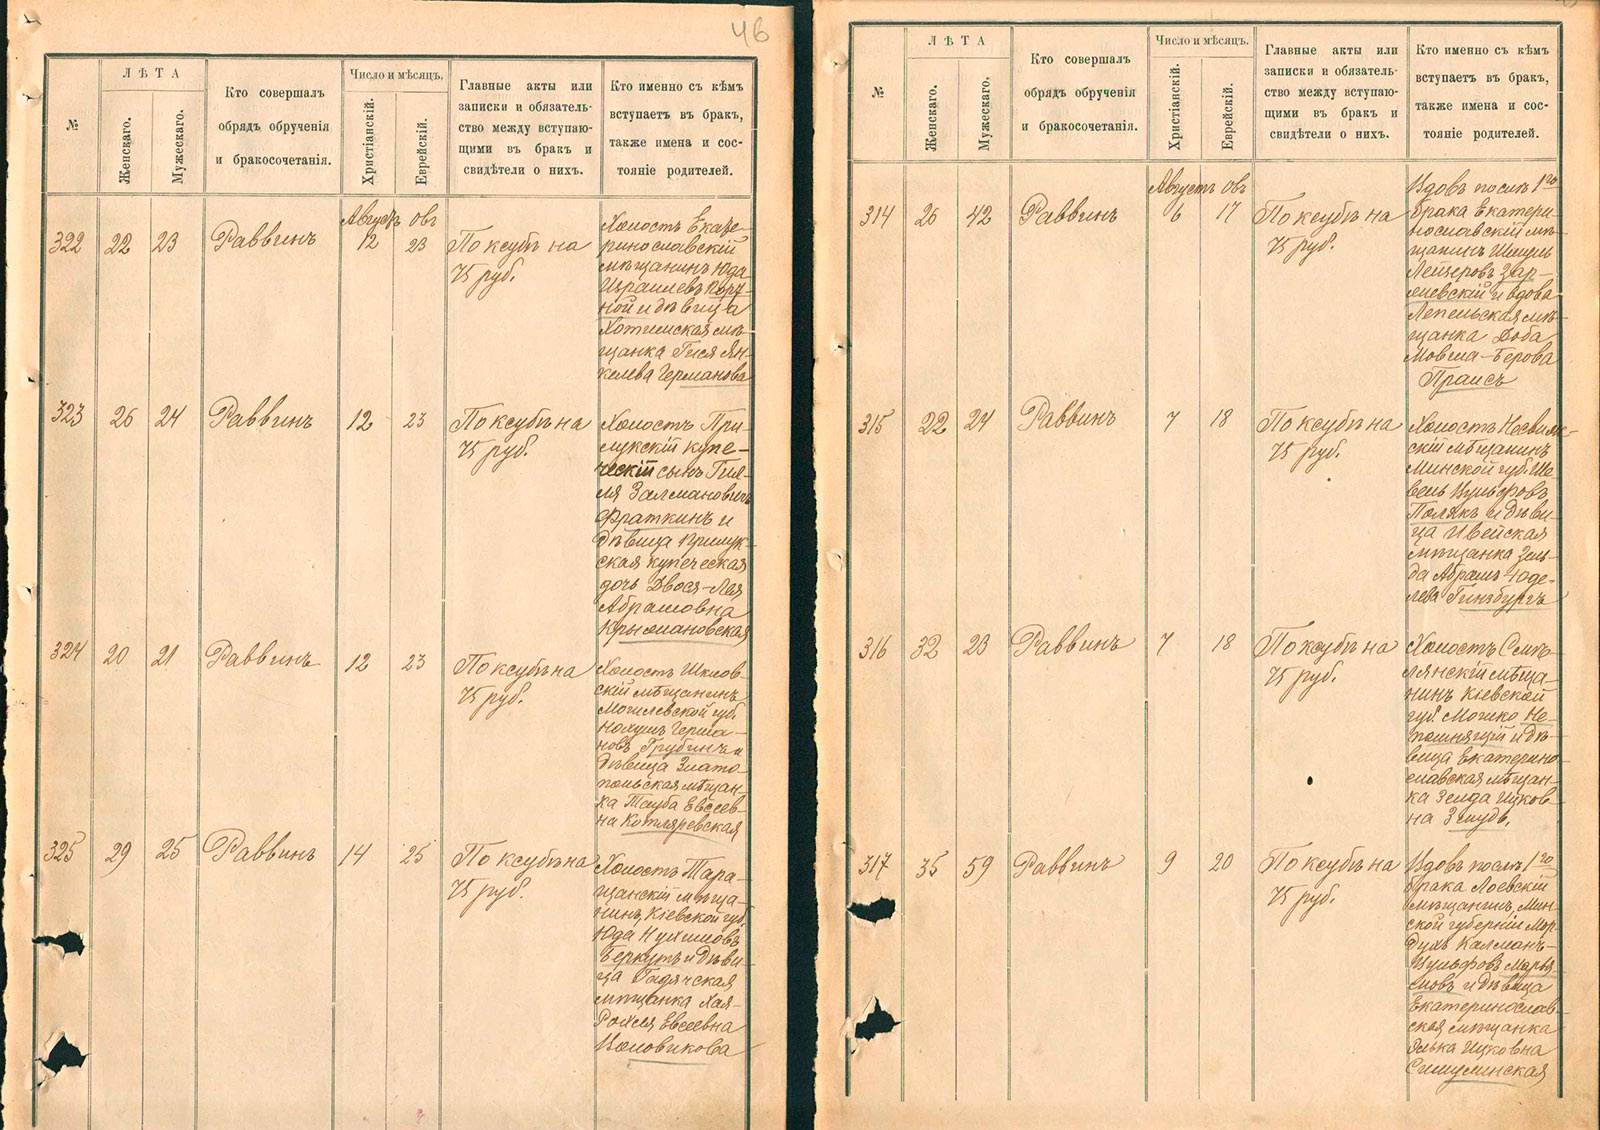 46
№
ЛѢТА
Женскаго.
Мужескаго.
Кто совершалъ
обрядъ обрученія
и бракосочетанія.
Число и мѣсяцъ.
Христіанскій.
Еврейскій.
Главные акты или
записки и обязатель-
ство между вступаю-
щими въ бракъ и
свидѣтели о нихъ.
Кто именно съ кѣмъ
вступаетъ въ бракъ,
также имена и сос-
тояніе родителей.
322
22
23
Раввинъ
Августъ Овъ
12
23
По ксубѣ на
75 руб.
Холостъ Екате-
ринославскій
мѣщанинъ Юда
Израилевъ Корч-
ной и дѣвица
Хотимская мѣ-
щанка Гися Ян-
келева Германова
323
26
24
Раввинъ
12
23
По ксубѣ на
75 руб.
Холостъ При-
лукскій купе-
ческій сынъ
Залмановичъ
Фраткинъ и
дѣвица Прилук-
ская купеческая
дочь Двося-Лея
Абрамовна
Крымановская
324
20
21
Раввинъ
12
23
По ксубѣ на
75 руб.
Холостъ Шклов-
скій мѣщанинъ
Могилевской губ.
Герша-
новъ Грубинъ и
дѣвица Злато-
польская мѣщан-
ка Тауба Евсеев-
на Котляревская
325
29
25
Раввинъ
14
25
По ксубѣ на
75 руб.
Холостъ Тара-
щанскій мѣща-
нинъ, Кіевской губ.
Юда Нухимовъ
Беркутъ и дѣви-
ца Гадячская
мѣщанка Хая-
Рохля Евсеевна
Цоловикова
№
ЛѢТА
Женскаго.
Мужескаго.
Кто совершалъ
обрядъ обрученія
и бракосочетанія.
Число и мѣсяцъ.
Христіанскій.
Еврейскій.
Главные акты или
записки и обязатель-
ство между вступаю-
щими въ бракъ и
свидѣтели о нихъ.
Кто именно съ кѣмъ
вступаетъ въ бракъ,
также имена и сос-
тояніе родителей.
314
26
42
Раввинъ
Августъ Овъ
6
17
По ксубѣ на
75 руб.
Вдовъ послѣ 1го
брака Екатери-
нославскій мѣ-
щанинъ Шмуль
Лейзеровъ Зар-
жевскій и вдова
Лепельская мѣ-
щанка Доба
Мовша-Берова
Праисъ
315
22
24
Раввинъ
7
18
По ксубѣ на
75 руб.
Холостъ Несвиж-
скій мѣщанинъ
Минской губ. Ше-
вель Вульфовъ
Полякъ и дѣви-
ца Ивейская
мѣщанка Золь-
да Абрамъ-Юде-
лева Гинзбургъ
316
32
23
Раввинъ
7
18
По ксубѣ на
75 руб.
Холостъ Смѣ-
лянскій мѣща-
нинъ Кіевской
губ. Мошко Не-
помнящій и дѣ-
вица Екатерино-
славская мѣщан-
ка Зелда Ицков-
на Змудъ.
317
35
59
Раввинъ
9
20
По ксубѣ на
75 руб.
Вдовъ послѣ 1го
брака Лоевскій
мѣщанинъ, Мин-
ской губерніи Мор-
духъ Калманъ-
Вульфовъ Марья-
мовъ и дѣвица
Екатеринослав-
ская мѣщанка
Элька Ицковна
Симулинская